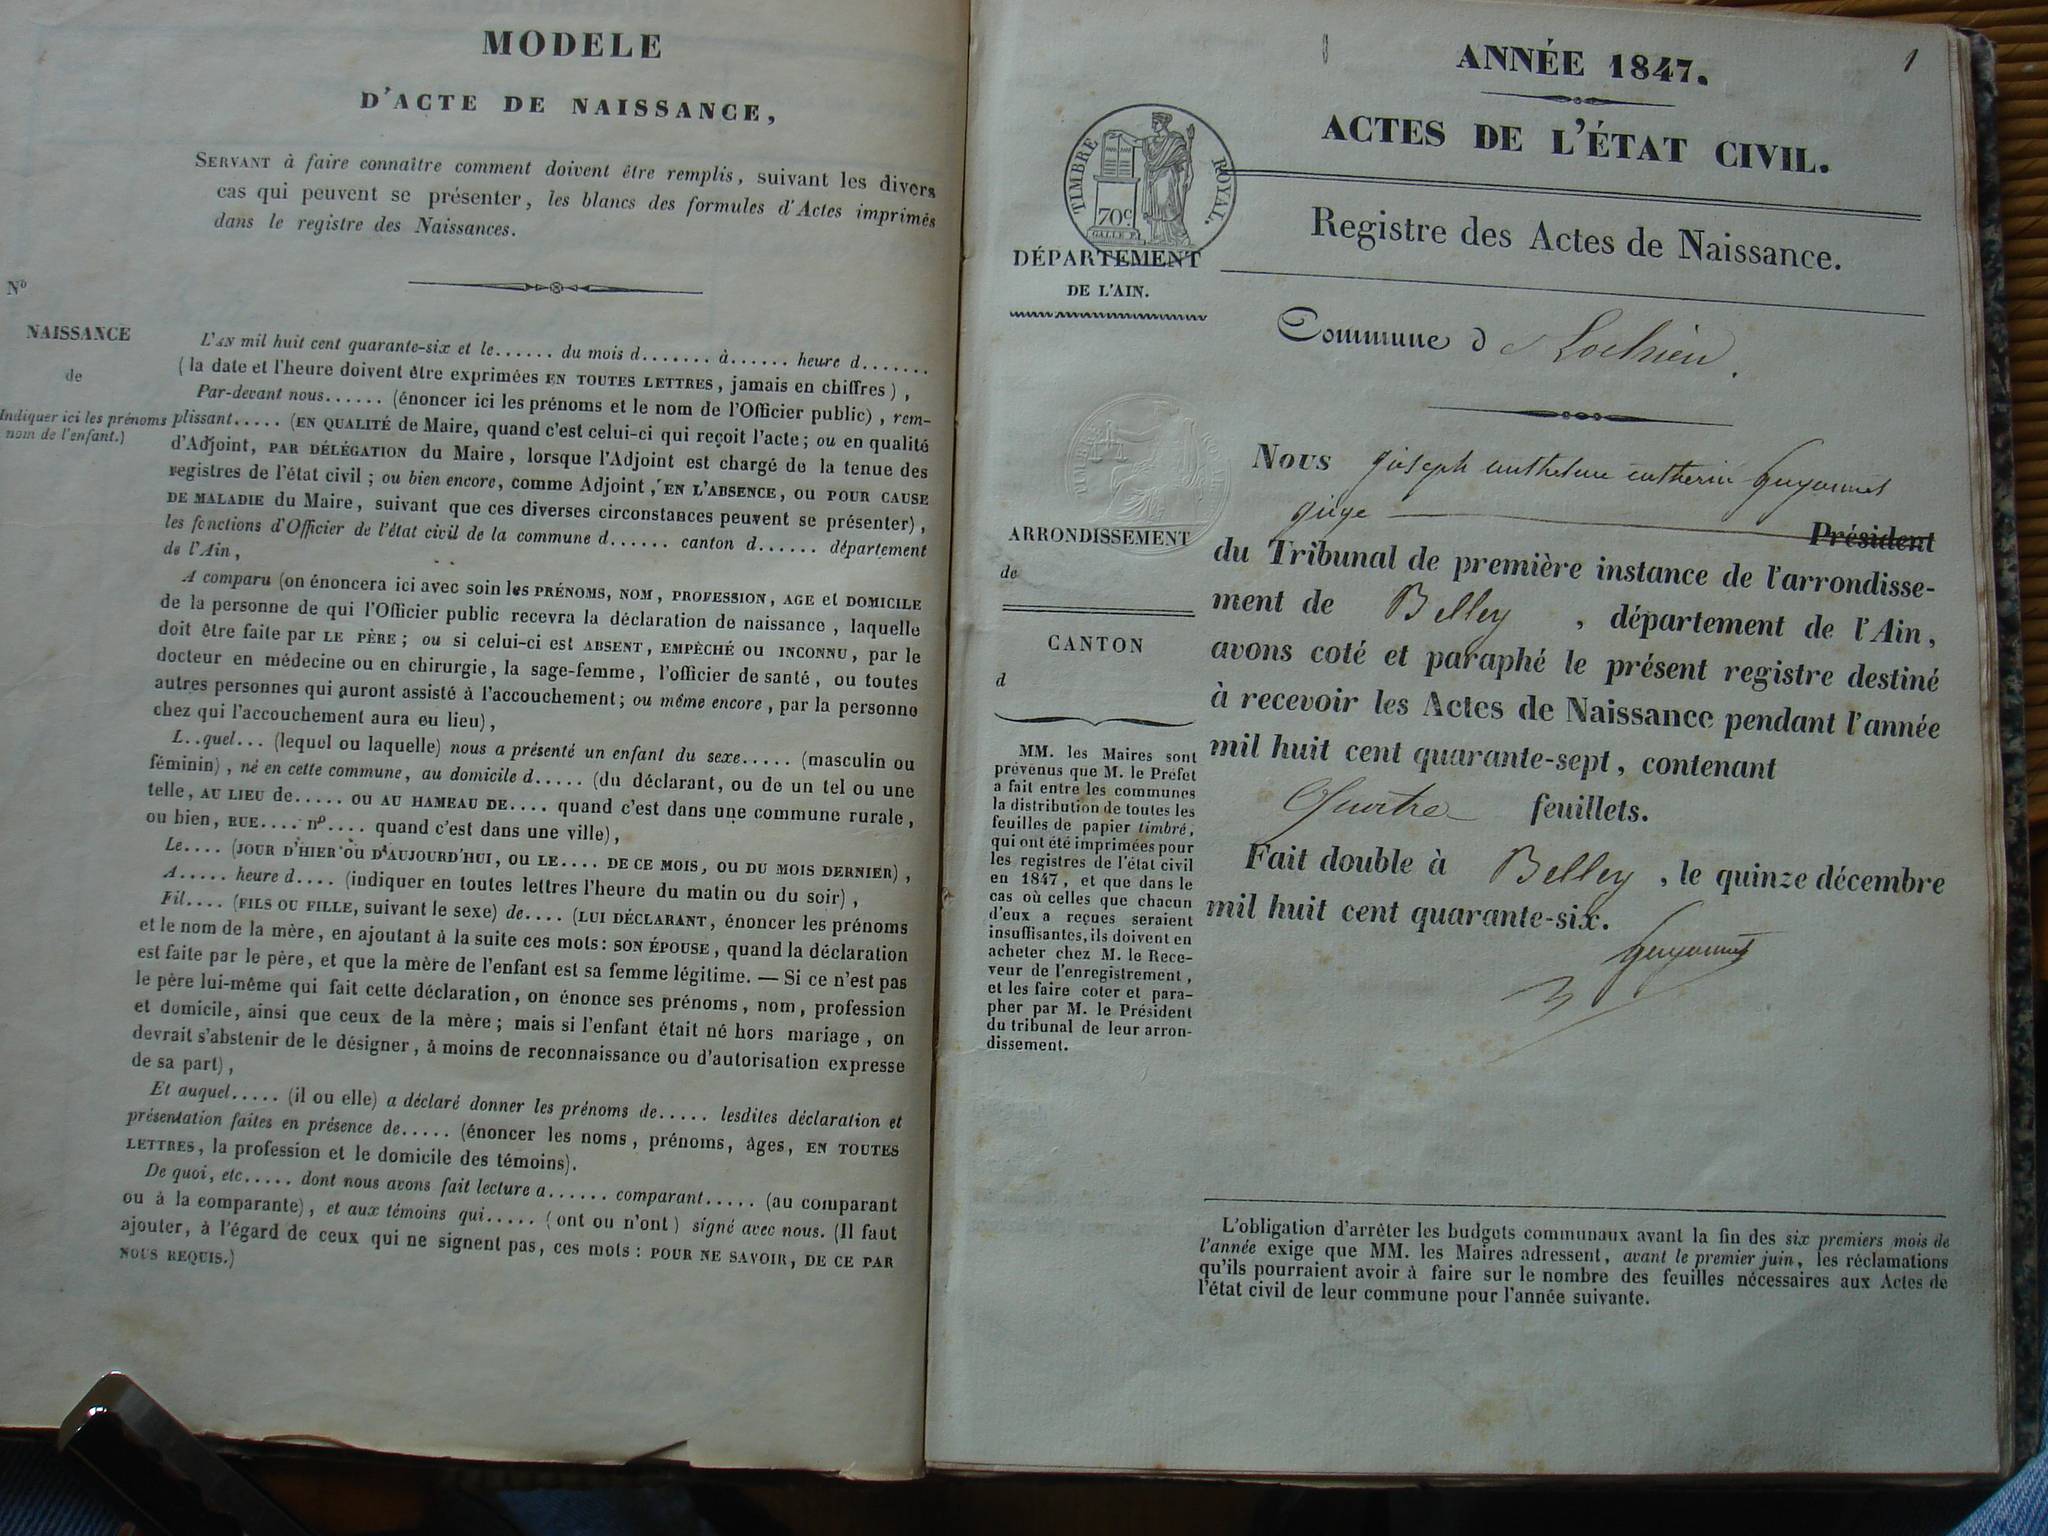 MODELE
D'ACTE DE NAISSANCE,
SERVANT à faire connaître comment doivent être remplis, suivant les divers
cas qui peuvent se présenter, les blancs des formules d'Actes imprimés
dans le registre des Naissances.
Nº
NAISSANCE
de
Indiquer ici les prénoms
nom de l'enfant.)
L'AN mil huit cent quarante-six et le...... du mois d....... à...... heure d.......
(la date et l'heure doivent être exprimées EN TOUTES LETTRES, jamais en chiffres),
Par-devant nous...... (énoncer ici les prénoms et le nom de l'Officier public), rem-
plissant..... (EN QUALITÉ de Maire, quand c'est celui-ci qui reçoit l'acte; ou en qualité
d'Adjoint, PAR DÉLÉGATION du Maire, lorsque l'Adjoint est chargé de la tenue des
registres de l'état civil; ou bien encore, comme Adjoint, EN L'ABSENCE, OU POUR CAUSE
DE MALADIE du Maire, suivant que ces diverses circonstances peuvent se présenter),
les fonctions d'Officier de l'état civil de la commune d...... canton d...... département
de l'Ain,
A comparu (on énoncera ici avec soin les PRÉNOMS, NOM, PROFESSION, AGE et DOMICILE
de la personne de qui l'Officier public recevra la déclaration de naissance, laquelle
doit être faite par LE PÈRE; ou si celui-ci est ABSENT, EMPÊCHÉ OU INCONNU, par le
docteur en médecine ou en chirurgie, la sage-femme, l'officier de santé, ou toutes
autres personnes qui auront assisté à l'accouchement; ou même encore, par la personne
chez qui l'accouchement aura eu lieu),
L..quel... (lequel ou laquelle) nous a présenté un enfant du sexe..... (masculin ou
féminin), né en cette commune, au domicile d..... (du déclarant, ou de un tel ou une
telle, AU LIEU de..... OU AU HAMEAU DE.... quand c'est dans une commune rurale,
ou bien, RUE.... nº.... quand c'est dans une ville),
Le.... (JOUR D'HIER OU D'AUJOURD'HUI, OU LE.... DE CE MOIS, OU DU MOIS DERNIER),
A..... heure d.... (indiquer en toutes lettres l'heure du matin ou du soir),
Fil.... (FILS OU FILLE, suivant le sexe) de.... (LUI DÉCLARANT, énoncer les prénoms
et le nom de la mère, en ajoutant à la suite ces mots: SON ÉPOUSE, quand la déclaration
est faite par le père, et que la mère de l'enfant est sa femme légitime. — Si ce n'est pas
le père lui-même qui fait cette déclaration, on énonce ses prénoms, nom, profession
et domicile, ainsi que ceux de la mère; mais si l'enfant était né hors mariage, on
devrait s'abstenir de le désigner, à moins de reconnaissance ou d'autorisation expresse
de sa part),
Et auquel..... (il ou elle) a déclaré donner les prénoms de..... lesdites déclaration et
présentation faites en présence de..... (énoncer les noms, prénoms, âges, EN TOUTES
LETTRES, la profession et le domicile des témoins).
De quoi, etc..... dont nous avons fait lecture a...... comparant..... (au comparant
ou à la comparante), et aux témoins qui..... (ont ou n'ont) signé avec nous. (Il faut
ajouter, à l'égard de ceux qui ne signent pas, ces mots: POUR NE SAVOIR, DE CE PAR
NOUS REQUIS.)
1
ANNÉE 1847.
ACTES DE L'ÉTAT CIVIL.
TIMBRE ROYAL.
70c
GALLE F.
Registre des Actes de Naissance.
DÉPARTEMENT
DE L'AIN.
Commune de Lochieu.
Nous joseph anthelme Guyonnet
juge Président
du Tribunal de première instance de l'arrondisse-
ment de Belley, département de l'Ain,
avons coté et paraphé le présent registre destiné
à recevoir les Actes de Naissance pendant l'année
mil huit cent quarante-sept, contenant
Quatre feuillets.
Fait double à Belley, le quinze décembre
mil huit cent quarante-six.
Guyonnet
ARRONDISSEMENT
de
CANTON
d
MM. les Maires sont
prévenus que M. le Préfet
a fait entre les communes
la distribution de toutes les
feuilles de papier timbré,
qui ont été imprimées pour
les registres de l'état civil
en 1847, et que dans le
cas où celles que chacun
d'eux a reçues seraient
insuffisantes, ils doivent en
acheter chez M. le Rece-
veur de l'enregistrement,
et les faire coter et para-
pher par M. le Président
du tribunal de leur arron-
dissement.
L'obligation d'arrêter les budgets communaux avant la fin des six premiers mois de
l'année exige que MM. les Maires adressent, avant le premier juin, les réclamations
qu'ils pourraient avoir à faire sur le nombre des feuilles nécessaires aux Actes de
l'état civil de leur commune pour l'année suivante.